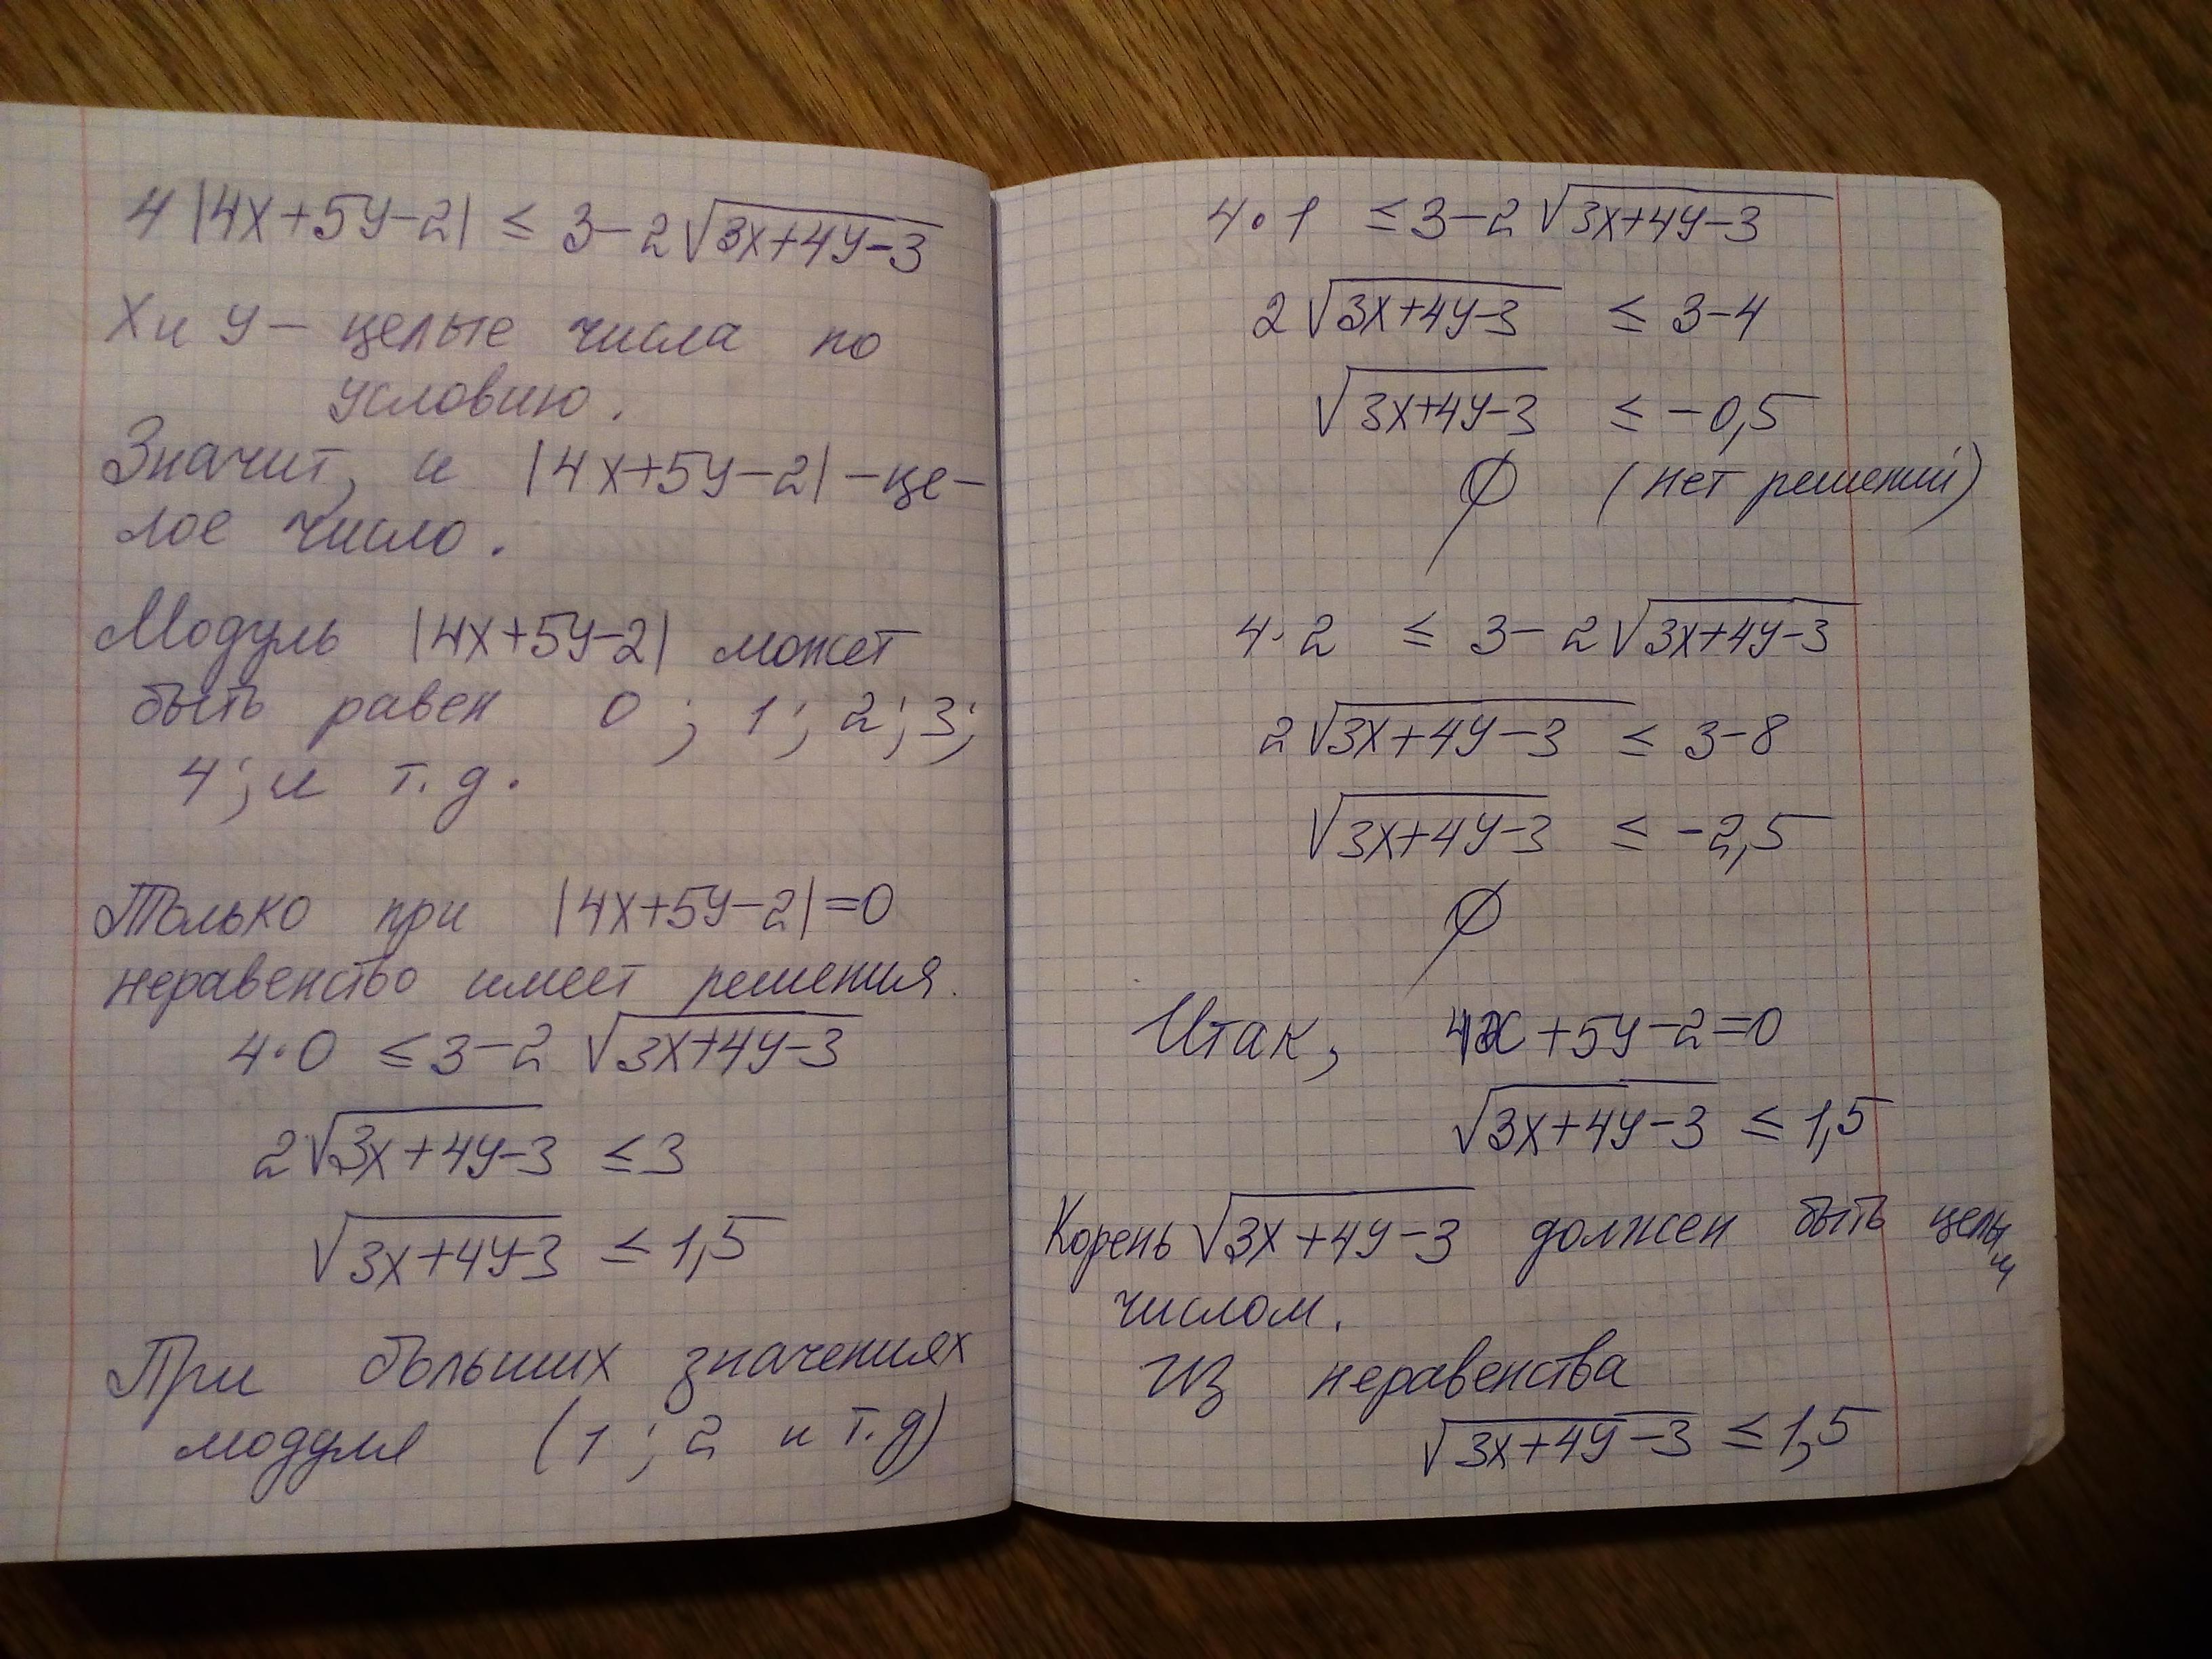 4|4x+5y-2| ≤ 3-2√(3x+4y-3)
Х и У – целые числа по
условию.
Значит, и |4x+5y-2| – це-
лое число.
Модуль |4x+5y-2| может
быть равен 0; 1; 2; 3;
4; и т.д.
Только при |4x+5y-2|=0
неравенство имеет решения.
4·0 ≤ 3-2√(3x+4y-3)
2√(3x+4y-3) ≤ 3
√(3x+4y-3) ≤ 1,5
При больших значениях
модуля (1; 2 и т.д)
4·1 ≤ 3-2√(3x+4y-3)
2√(3x+4y-3) ≤ 3-4
√(3x+4y-3) ≤ -0,5
∅ (нет решений)
4·2 ≤ 3-2√(3x+4y-3)
2√(3x+4y-3) ≤ 3-8
√(3x+4y-3) ≤ -2,5
∅
Итак, 4x+5y-2=0
√(3x+4y-3) ≤ 1,5
Корень √(3x+4y-3) должен быть целым
числом.
Из неравенства
√(3x+4y-3) ≤ 1,5